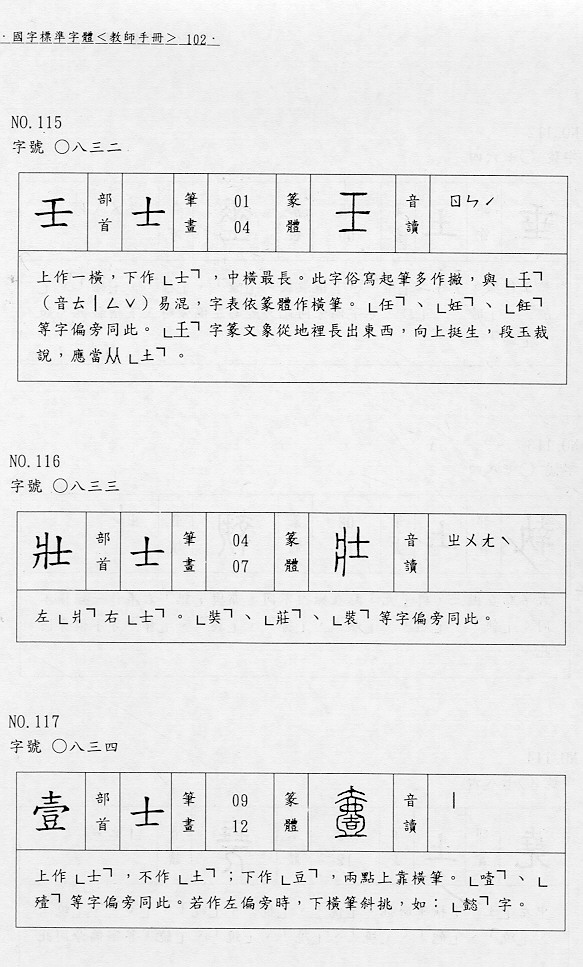 ·國字標準字體<教師手冊> 102·
NO.115
字號 ○八三二
壬 部首 士 筆畫 01 04 篆體 音讀 ㄖㄣˊ
上作一橫，下作「士」，中橫最長。此字俗寫起筆多作撇，與「𡈼」
（音ㄊㄧㄥˇ）易混，字表依篆體作橫筆。「任」、「妊」、「飪」
等字偏旁同此。「𡈼」字篆文象從地裡長出東西，向上挺生，段玉裁
說，應當从「土」。
NO.116
字號 ○八三三
壯 部首 士 筆畫 04 07 篆體 音讀 ㄓㄨㄤˋ
左「爿」右「士」。「奘」、「莊」、「裝」等字偏旁同此。
NO.117
字號 ○八三四
壹 部首 士 筆畫 09 12 篆體 音讀 ㄧ
上作「士」，不作「土」；下作「豆」，兩點上靠橫筆。「噎」、「
殪」等字偏旁同此。若作左偏旁時，下橫筆斜挑，如：「懿」字。